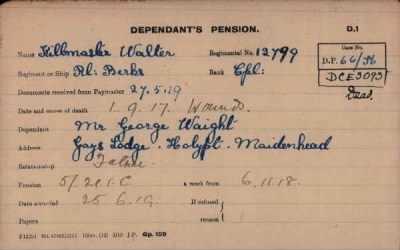 DEPENDANT'S PENSION. D.1
Name Killmaster Walter Regimental No. 12799 Case No.
Regiment or Ship Rl: Berks Rank Cpl: D.P. 66/36
Documents received from Paymaster 27.5.19 DCE3093
Date and cause of death 1.9.17. Wounds.
Dependant Mr George Waight
Address Gays Lodge. Holypt. Maidenhead
Relationship Father
Pension 5/- a week from 6.11.18.
Date awarded 25.6.19 If refused
Papers reason
Gp. 159